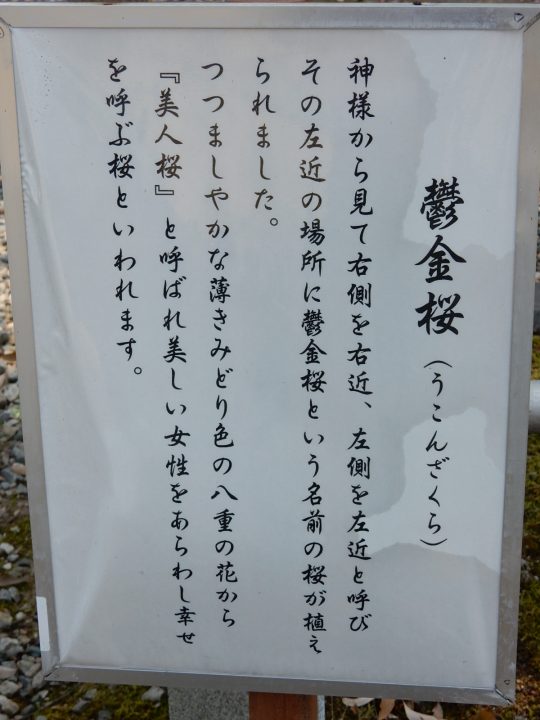 鬱金桜（うこんざくら）
神様から見て右側を右近、左側を左近と呼び
その左近の場所に鬱金桜という名前の桜が植え
られました。
つつましやかな薄きみどり色の八重の花から
『美人桜』と呼ばれ美しい女性をあらわし幸せ
を呼ぶ桜といわれます。